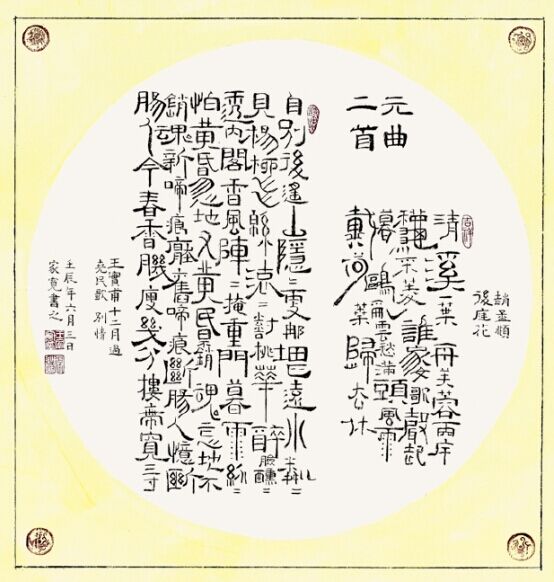 元曲
二首
趙孟頫
後庭花
清溪一葉舟芙蓉兩岸
龝采菱誰家女歌聲起
暮鷗亂雲愁滿頭風雨
戴荷葉歸去休
自別後遙山隱〻更那堪遠水粼〻
見楊柳飛綿滾〻對桃華醉臉醺〻
透內閣香風陣〻掩重門暮雨紛〻
怕黃昏忽地又黃昏不銷魂怎地不
銷魂新啼痕壓舊啼痕斷腸人憶斷
腸人今春香肌瘦幾分摟帶寬三寸
王實甫十二月過
堯民歌 別情
壬辰年六月三日
家寬書之